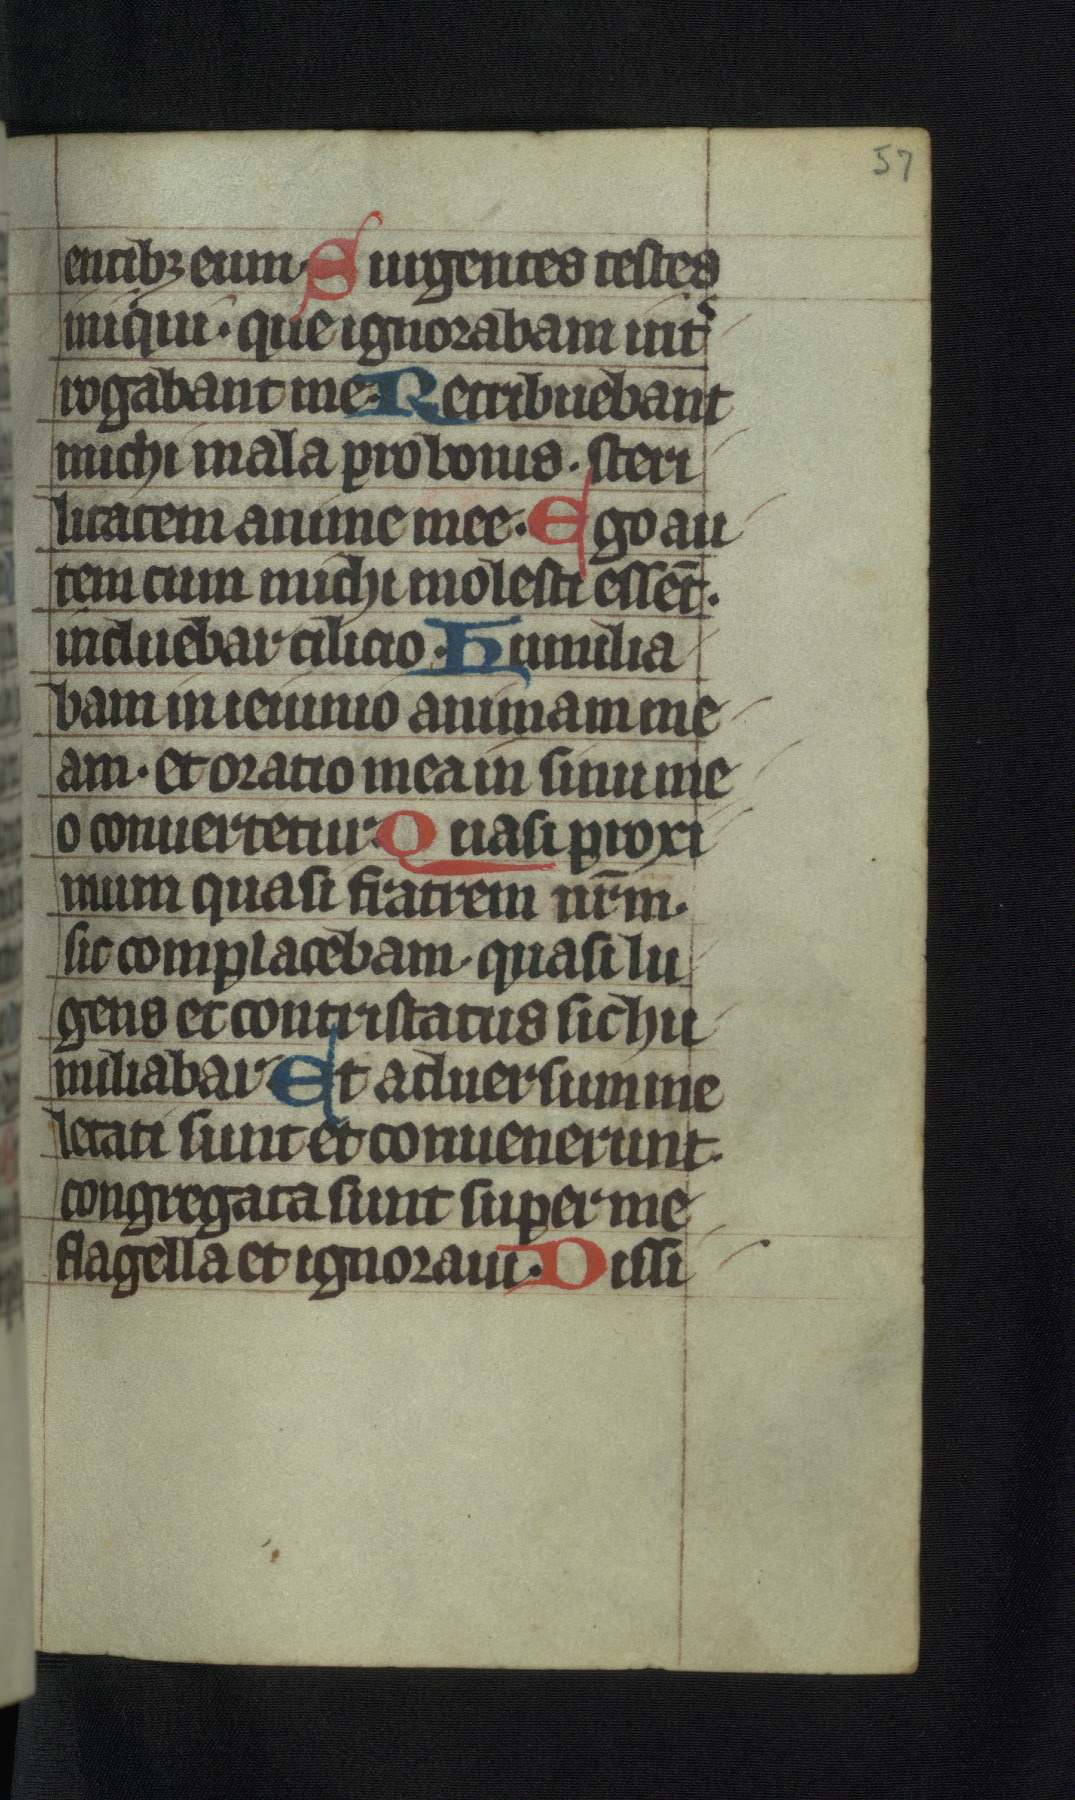 57
entibꝫ eum. Surgentes testes
iniqui. que ignorabam int͛
rogabant me. Retribuebant
michi mala pro bonis. steri
litatem anime mee. Ego au
tem cum michi molesti essēt.
induebar cilicio. Humilia
bam in ieiunio animam me
am. et oratio mea in sinu me
o conuertetur. Quasi proxi
mum quasi fratrem nr̄m.
sic complacebam. quasi lu
gens et contristatus sic hu
miliabar. Et aduersum me
letati sunt et conuenerunt.
congregata sunt super me
flagella et ignoraui. Dissi